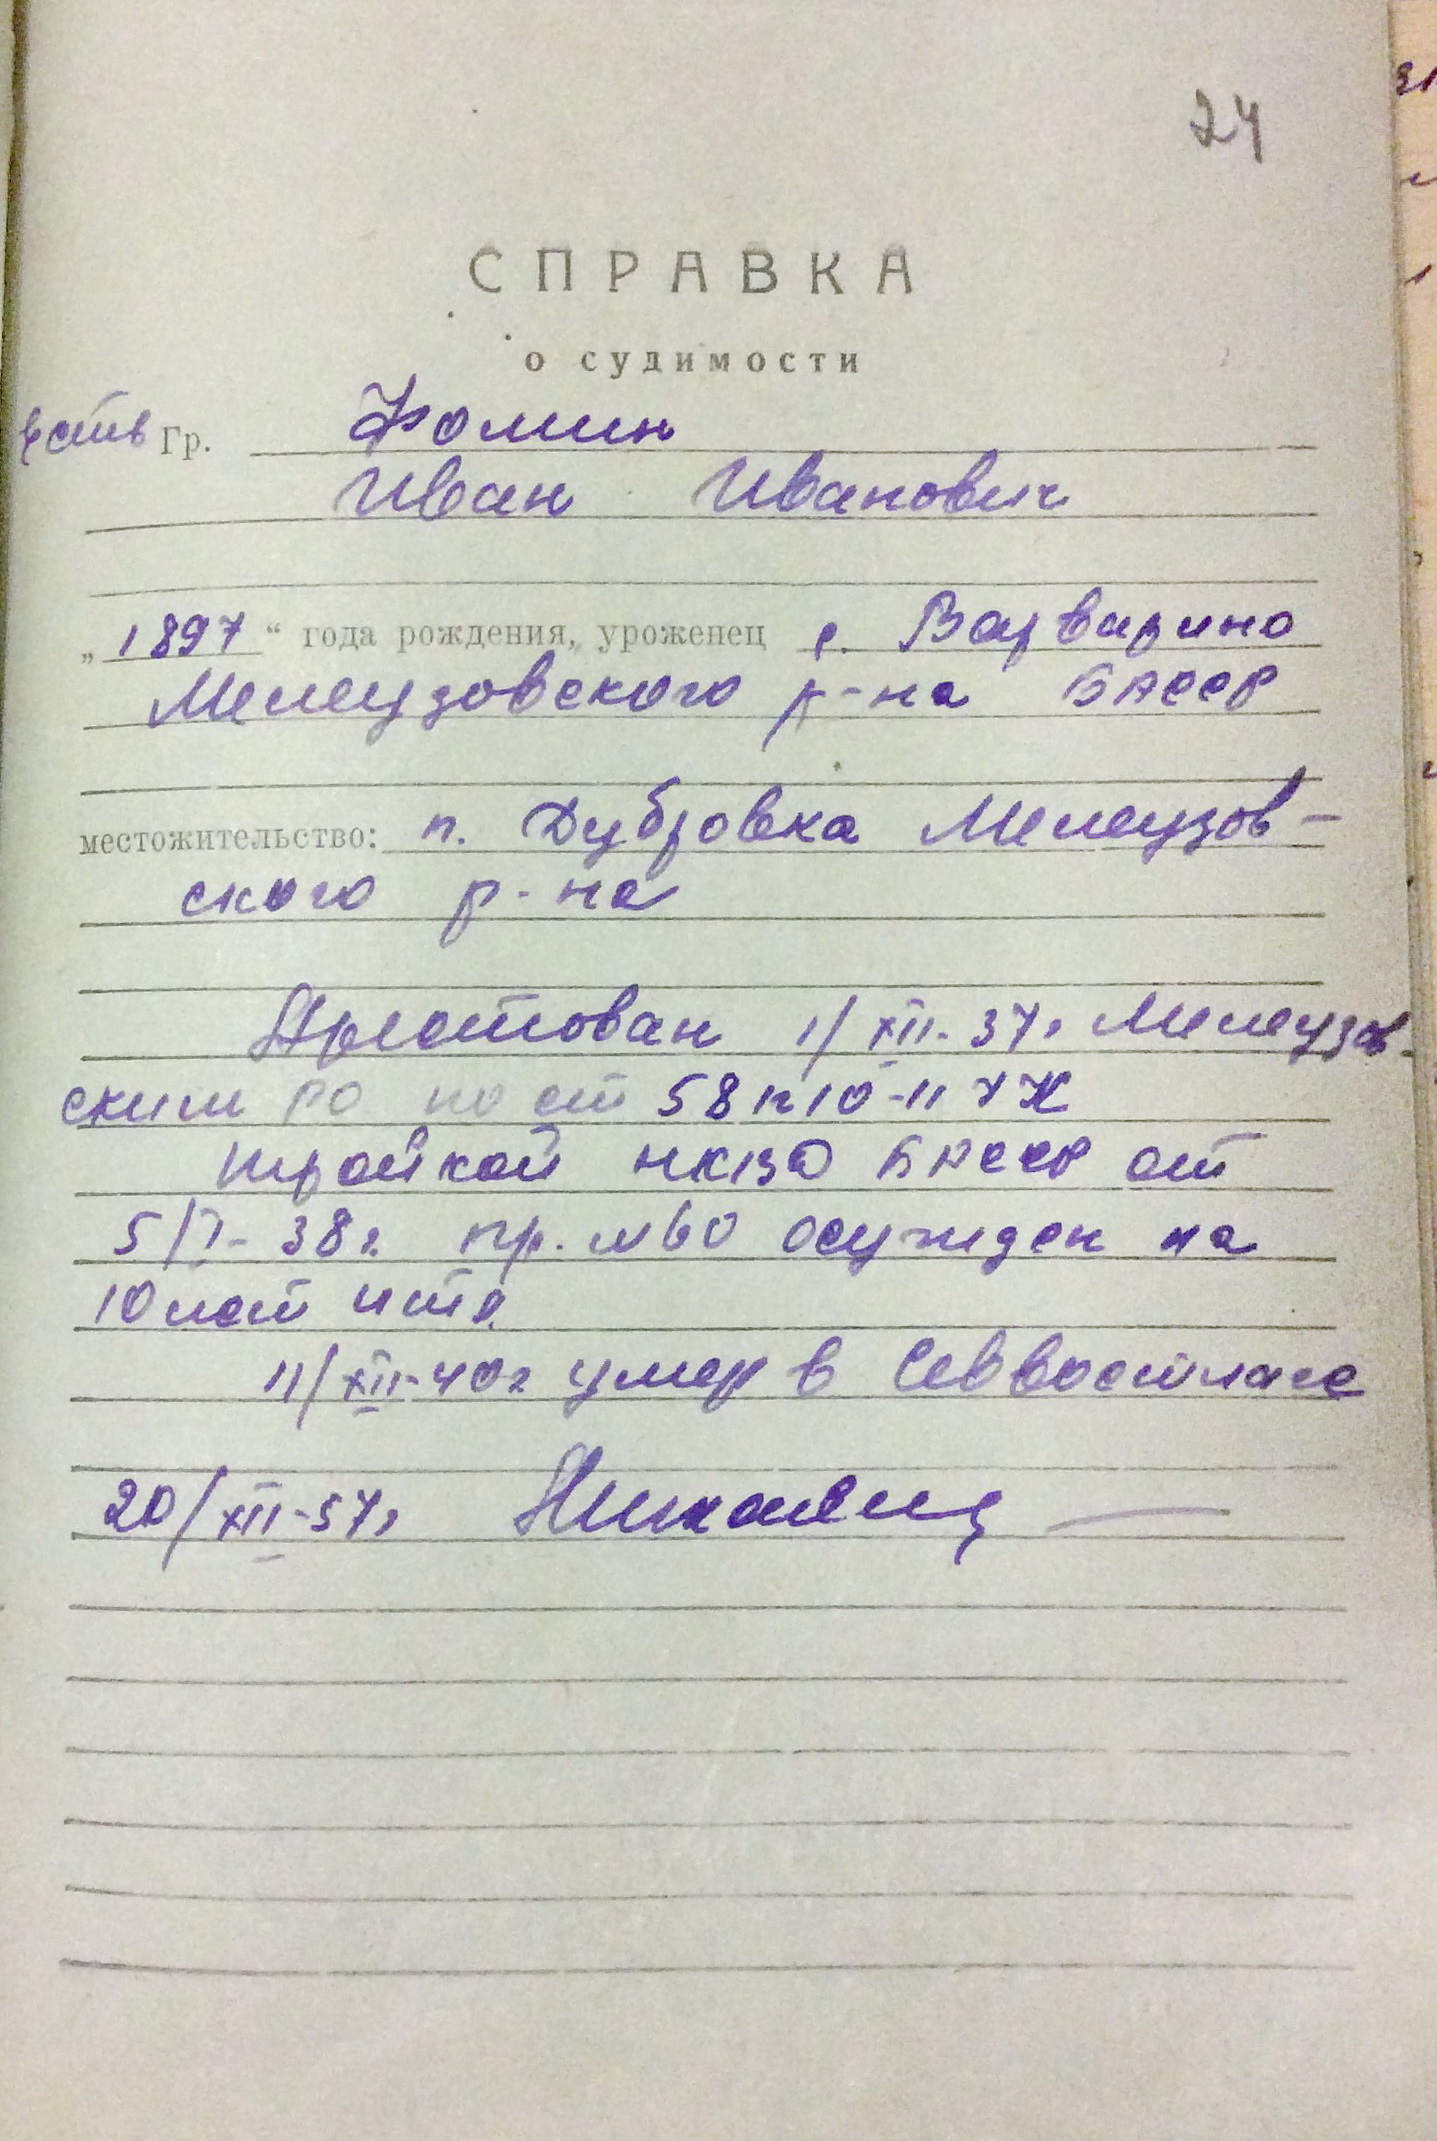 24
СПРАВКА
о судимости
Гр. Фомин
Иван Иванович
„1897“ года рождения, уроженец с. Варварино
Мелеузовского р-на БАССР
местожительство: п. Дубровка Мелеузов-
ского р-на
Арестован 1/XII-37г Мелеузов-
ским РО по ст 58 п 10-11 УК
тройкой НКВД БАССР от
5/I-38г. пр. №60 осужден на
10 лет итл.
11/XII-40г умер в Севвостлаге
20/XII-57г